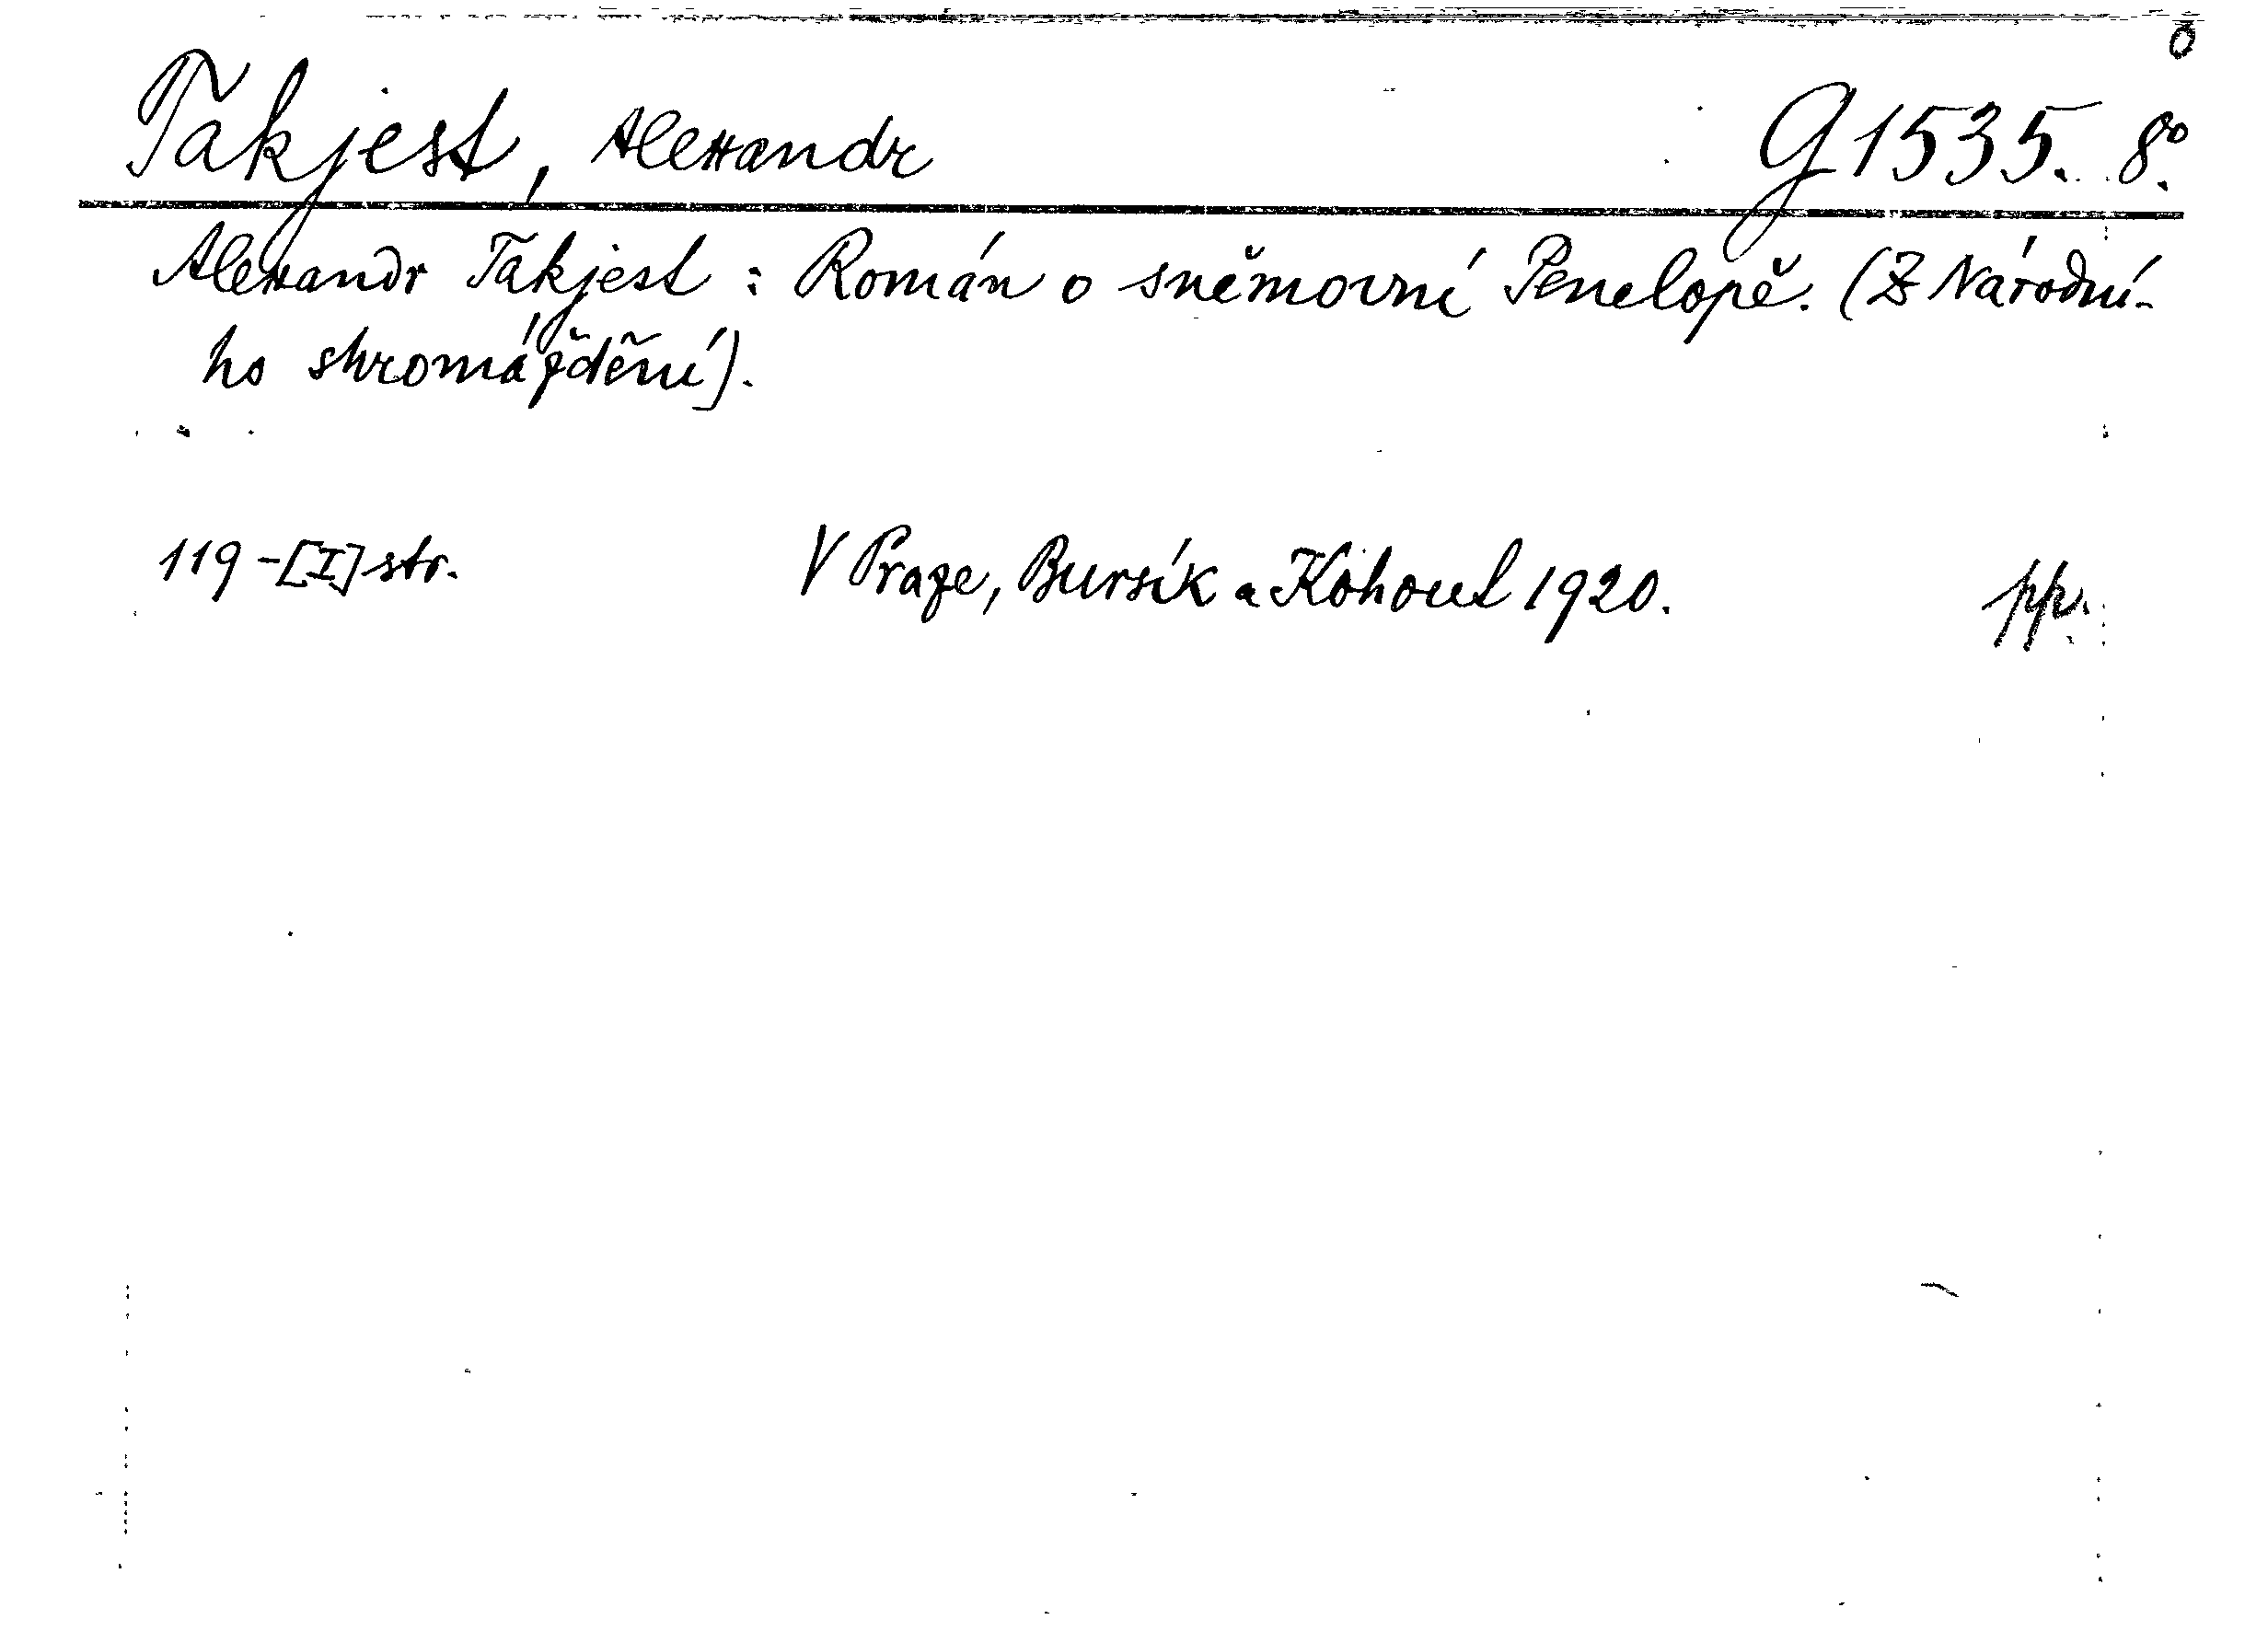 Takjest, Alexandr G 1535. 8°.
Alexandr Takjest : Román o sněmovní Penelopě. (Z Národní-
ho shromáždění).
119-[I] str. V Praze, Bursík a Kohout 1920. pp.